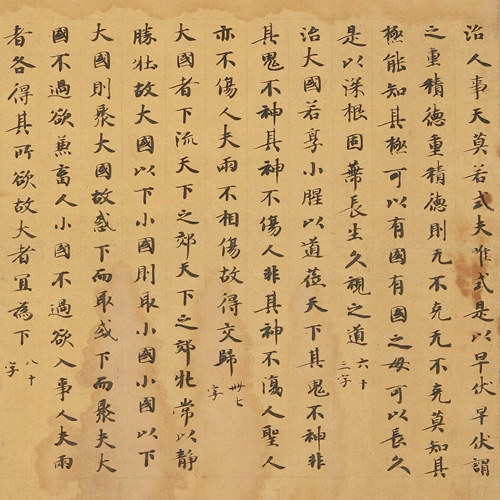 治人事天莫若式夫唯式是以早伏早伏謂
之重積德重積德則无不克无不克莫知其
極能知其極可以有國有國之母可以長久
是以深根固蔕長生久視之道 六十三字
治大國若享小腥以道莅天下其鬼不神非
其鬼不神其神不傷人非其神不傷人聖人
亦不傷人夫兩不相傷故得交歸 卌七字
大國者下流天下之郊天下之郊牝常以靜
勝牡故大國以下小國則取小國小國以下
大國則聚大國故或下而取或下而聚夫大
國不過欲兼畜人小國不過欲入事人夫兩
者各得其所欲故大者宜為下 八十字